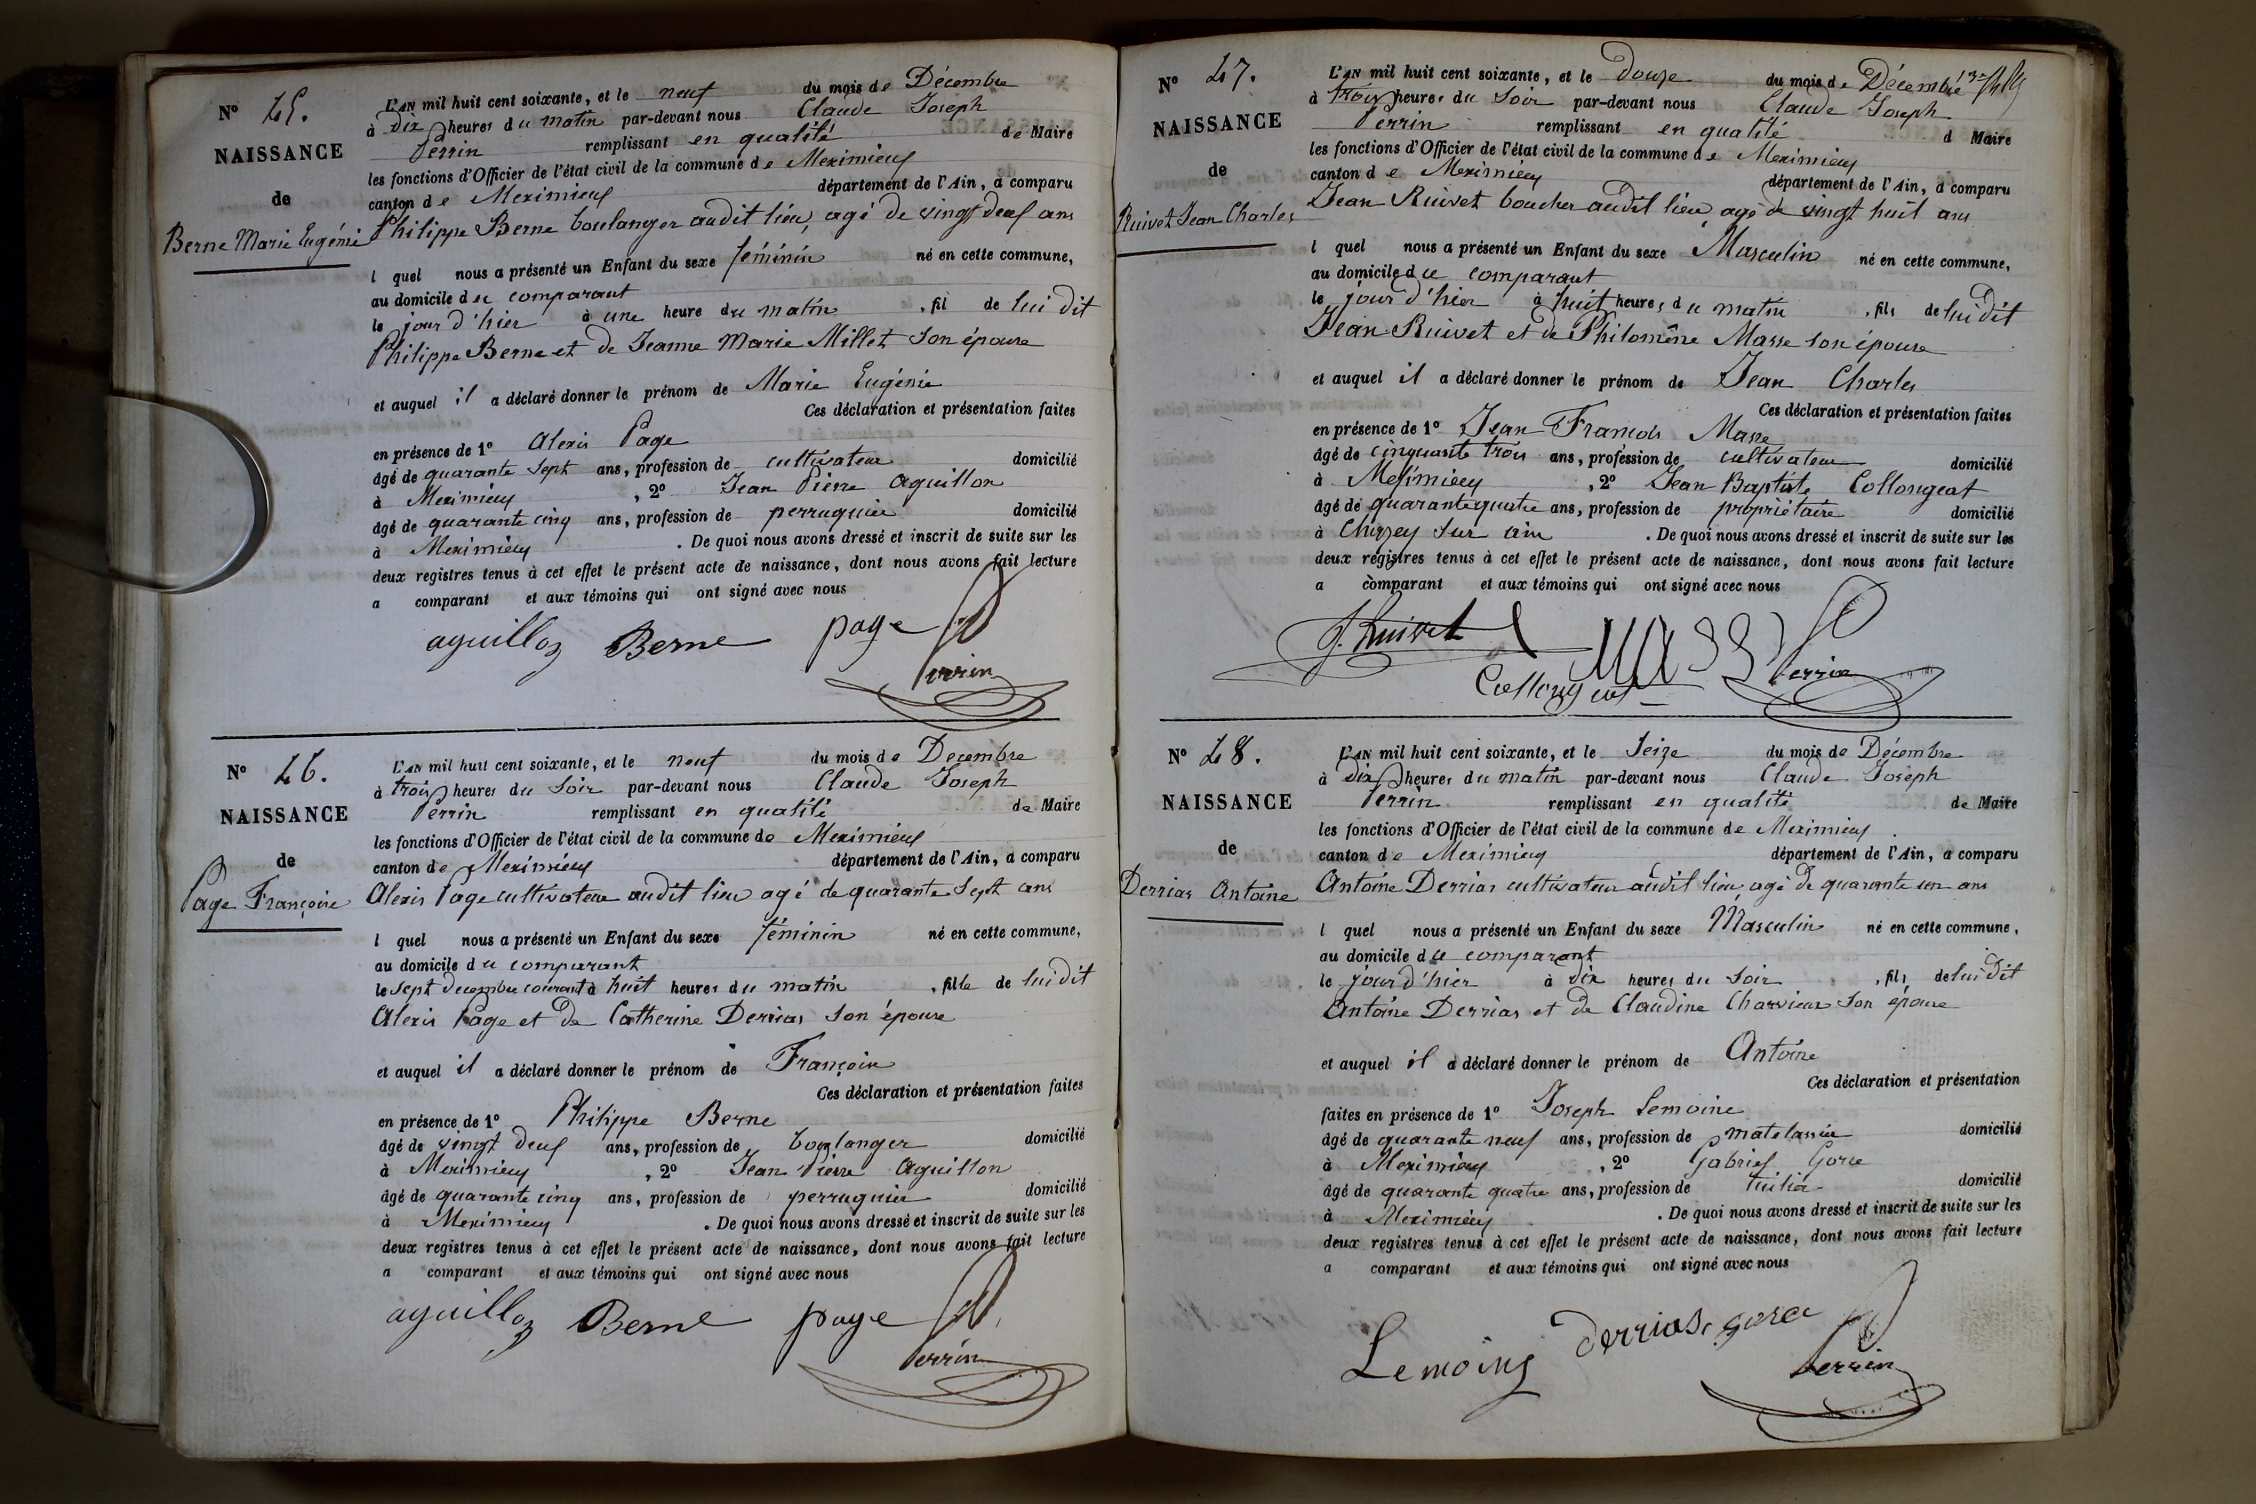 N° 45.
NAISSANCE
de
Berne Marie Eugénie
L'AN mil huit cent soixante, et le neuf du mois de Décembre
à dix heures du matin par-devant nous Claude Joseph
Perrin remplissant en qualité de Maire
les fonctions d'Officier de l'état civil de la commune de Meximieux
canton de Meximieux département de l'Ain, a comparu
Philippe Berne boulanger audit lieu, agé de vingt deux ans
l quel nous a présenté un Enfant du sexe féminin né en cette commune,
au domicile du comparant
le jour d'hier à une heure du matin , fil de lui dit
Philippe Berne et de Jeanne Marie Millet son épouse
et auquel il a déclaré donner le prénom de Marie Eugénie
Ces déclaration et présentation faites
en présence de 1° Alexis Page
âgé de quarante sept ans, profession de cultivateur domicilié
à Meximieux , 2° Jean Pierre Aguillon
âgé de quarante cinq ans, profession de perruquier domicilié
à Meximieux . De quoi nous avons dressé et inscrit de suite sur les
deux registres tenus à cet effet le présent acte de naissance, dont nous avons fait lecture
a comparant et aux témoins qui ont signé avec nous
aguillon Berne page
Perrin
N° 46.
NAISSANCE
de
Page Françoise
L'AN mil huit cent soixante, et le neuf du mois de Decembre
à trois heures du soir par-devant nous Claude Joseph
Perrin remplissant en qualité de Maire
les fonctions d'Officier de l'état civil de la commune de Meximieux
canton de Meximieux département de l'Ain, a comparu
Alexis Page cultivateur audit lieu agé de quarante sept ans
l quel nous a présenté un Enfant du sexe féminin né en cette commune,
au domicile du comparant
le sept decembre courant à huit heures du matin , fille de lui dit
Alexis Page et de Catherine Derrias son épouse
et auquel il a déclaré donner le prénom de Françoise
Ces déclaration et présentation faites
en présence de 1° Philippe Berne
âgé de vingt deux ans, profession de boulanger domicilié
à Meximieux , 2° Jean Pierre Aguillon
âgé de quarante cinq ans, profession de perruquier domicilié
à Meximieux . De quoi nous avons dressé et inscrit de suite sur les
deux registres tenus à cet effet le présent acte de naissance, dont nous avons fait lecture
a comparant et aux témoins qui ont signé avec nous
aguillon Berne page
Perrin
N° 47.
NAISSANCE
de
Ruivet Jean Charles
L'AN mil huit cent soixante, et le douze du mois de Décembre
à trois heures du soir par-devant nous Claude Joseph
Perrin remplissant en qualité d Maire
les fonctions d'Officier de l'état civil de la commune de Meximieux
canton de Meximieux département de l'Ain, a comparu
Jean Ruivet boucher audit lieu agé de vingt huit ans
l quel nous a présenté un Enfant du sexe Masculin né en cette commune,
au domicile du comparant
le jour d'hier à huit heures du matin , fils de lui dit
Jean Ruivet et de Philomène Masse son épouse
et auquel il a déclaré donner le prénom de Jean Charles
Ces déclaration et présentation faites
en présence de 1° Jean François Masse
âgé de cinquante trois ans, profession de cultivateur domicilié
à Meximieux , 2° Jean Baptiste Collongeat
âgé de quarante quatre ans, profession de propriétaire domicilié
à Chazey sur ain . De quoi nous avons dressé et inscrit de suite sur les
deux registres tenus à cet effet le présent acte de naissance, dont nous avons fait lecture
a comparant et aux témoins qui ont signé avec nous
J. Ruivet MASS Perrin
Collongeat
N° 48.
NAISSANCE
de
Derrias Antoine
L'AN mil huit cent soixante, et le Seize du mois de Décembre
à dix heures du matin par-devant nous Claude Joseph
Perrin remplissant en qualité de Maire
les fonctions d'Officier de l'état civil de la commune de Meximieux
canton de Meximieux département de l'Ain, a comparu
Antoine Derrias cultivateur audit lieu agé de quarante un ans
l quel nous a présenté un Enfant du sexe Masculin né en cette commune,
au domicile du comparant
le jour d'hier à dix heures du soir , fils de lui dit
Antoine Derrias et de Claudine Charvieux son épouse
et auquel il a déclaré donner le prénom de Antoine
Ces déclaration et présentation
faites en présence de 1° Joseph Lemoine
âgé de quarante neuf ans, profession de matelassier domicilié
à Meximieux , 2° Gabriel Gorce
âgé de quarante quatre ans, profession de tuilier domicilié
à Meximieux . De quoi nous avons dressé et inscrit de suite sur les
deux registres tenus à cet effet le présent acte de naissance, dont nous avons fait lecture
a comparant et aux témoins qui ont signé avec nous
Lemoine Derrias gorce
Perrin